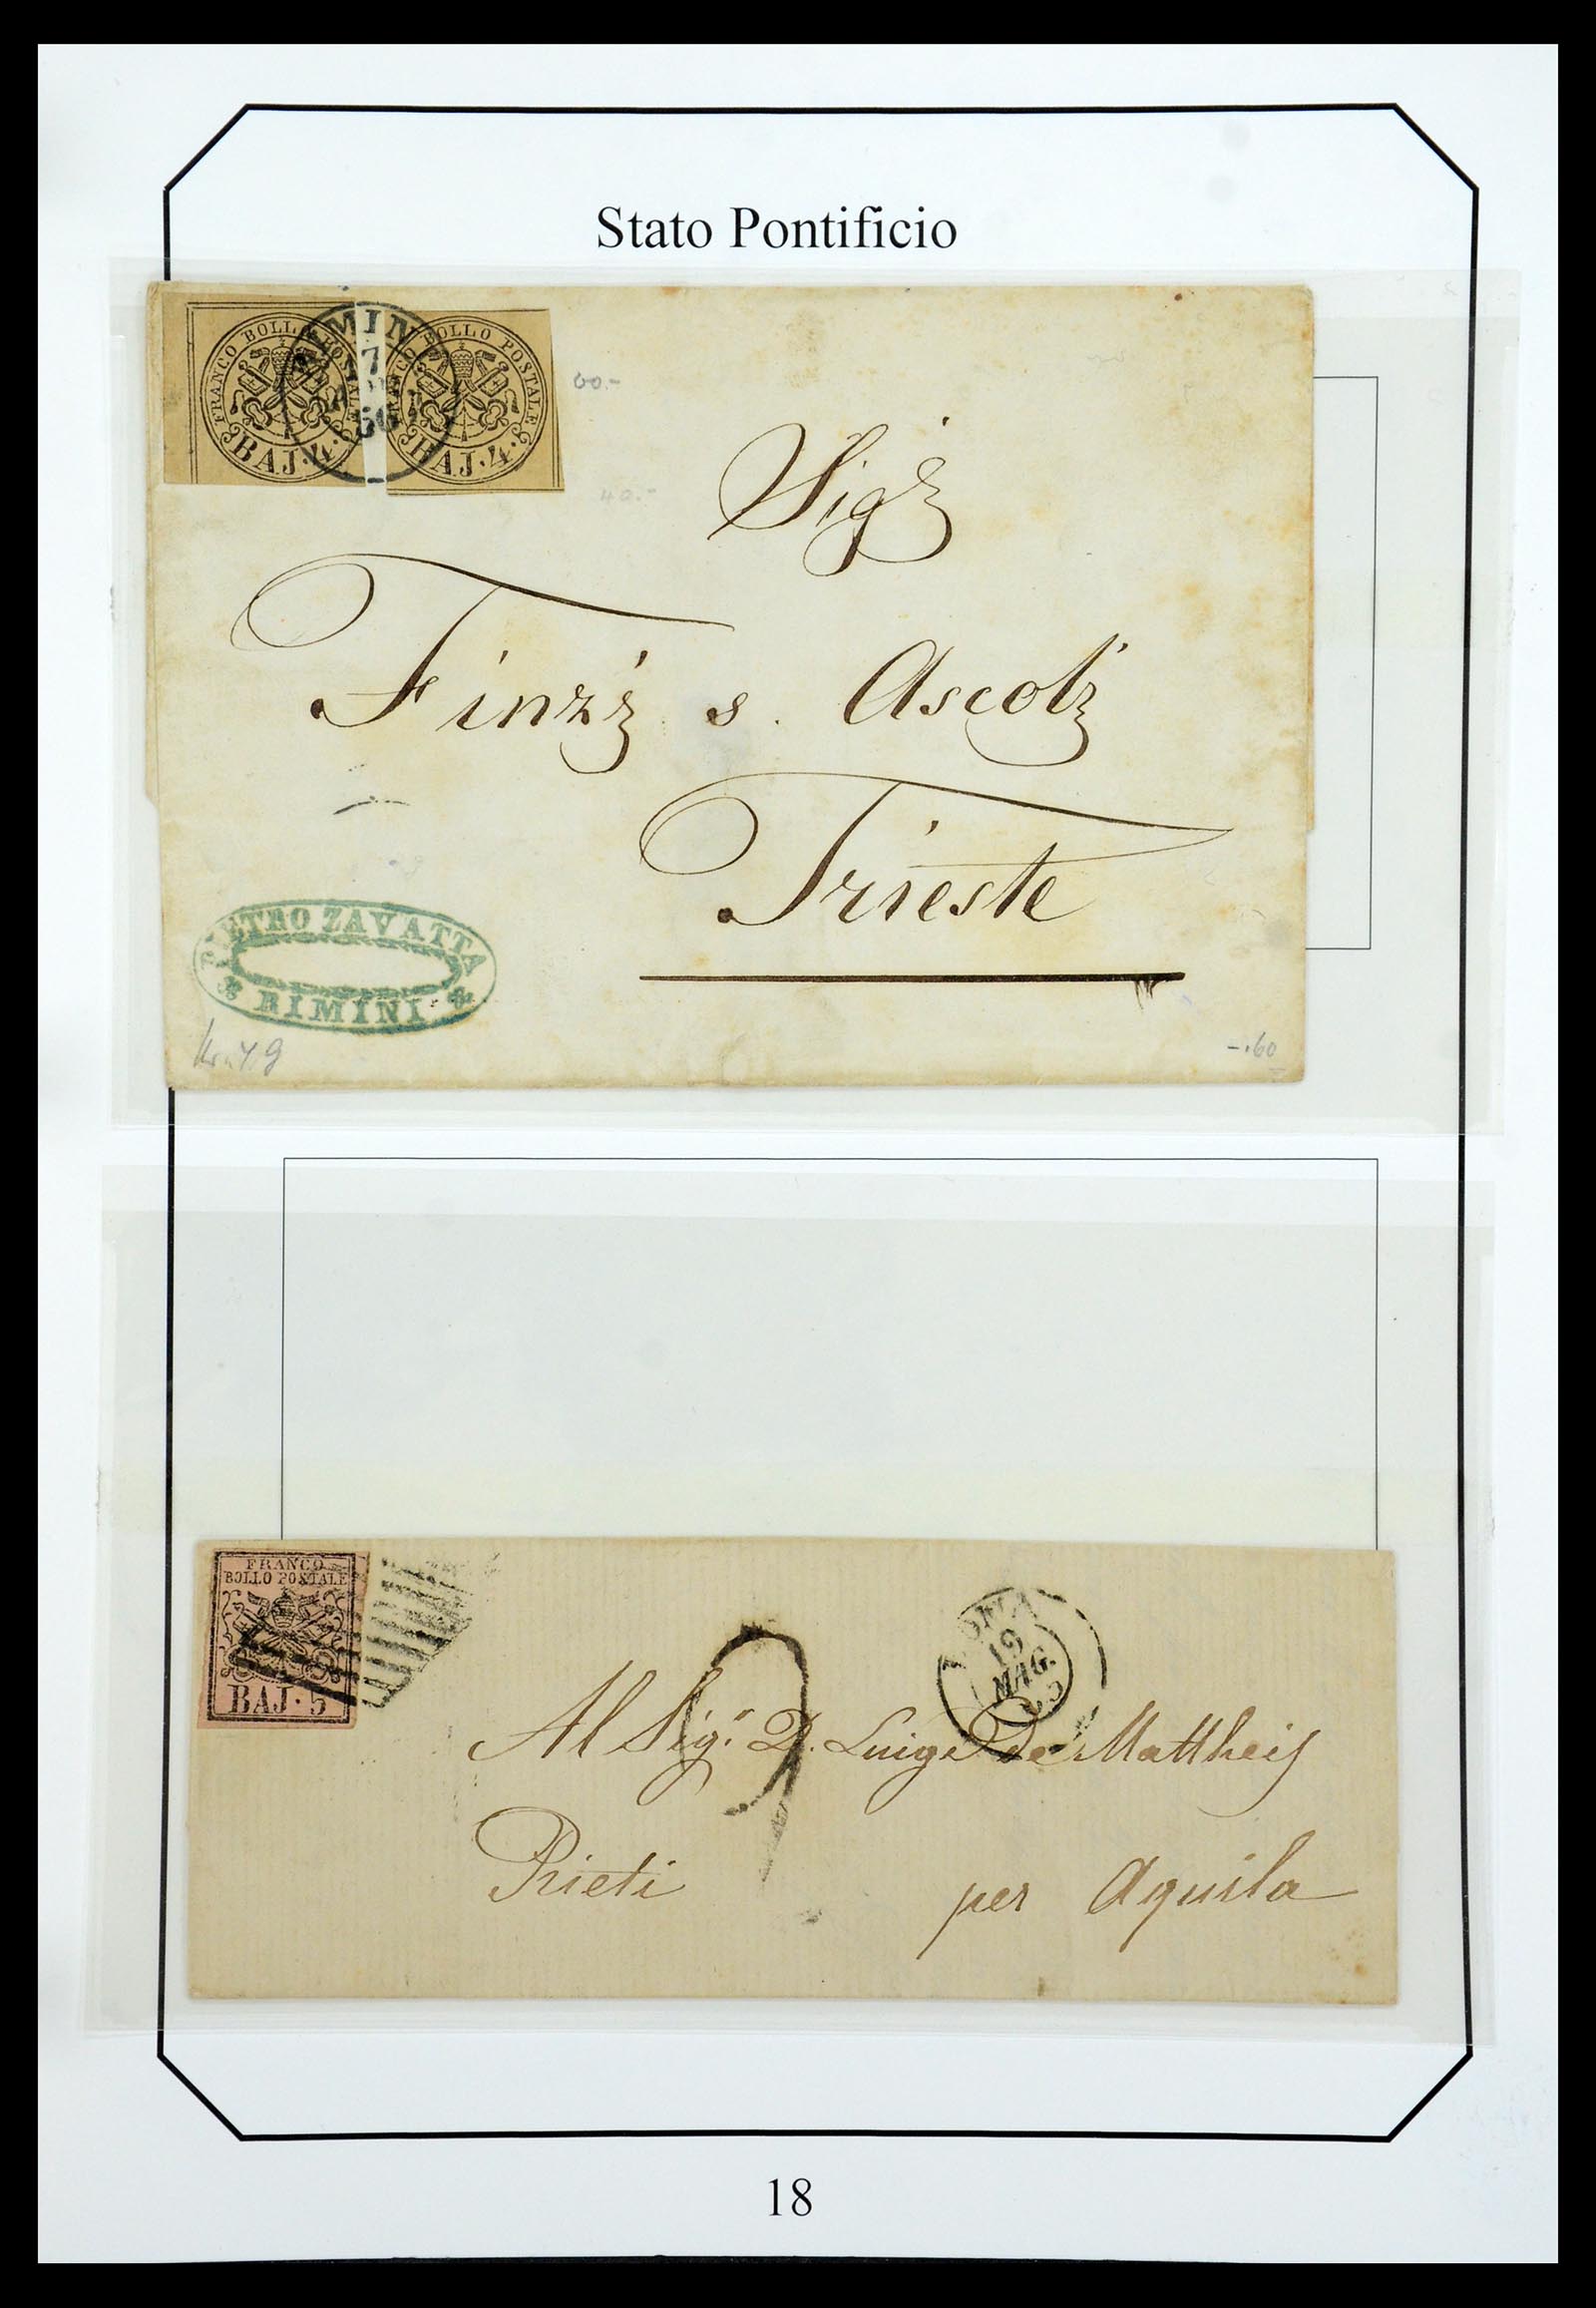 Stato Pontificio
FRANCO BOLLO POSTALE
BAJ. 4.
FRANCO BOLLO POSTALE
BAJ. 4.
RIMINI
7
56
60.-
40.-
Sigi
Finzi s. Ascoli
Trieste
PIETRO ZAVATTA
RIMINI
-.60
FRANCO
BOLLO POSTALE
BAJ. 5
ROMA
19
MAG.
65
Al Sigr. D. Luigi De Mattheis
Rieti per Aquila
18